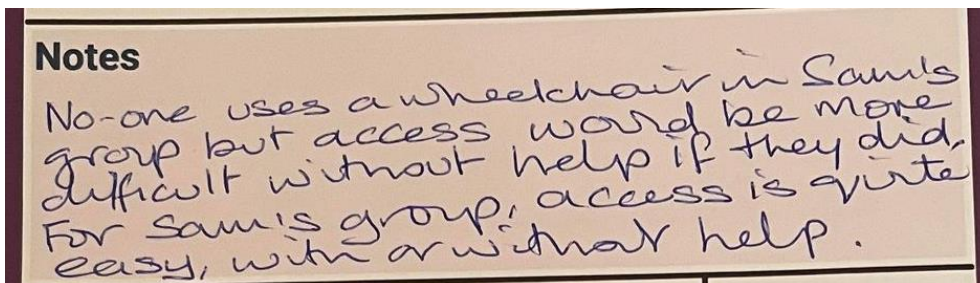 Notes
No-one uses a wheelchair in Sam's
group but access would be more
difficult without help if they did.
For Sam's group, access is quite
easy, with or without help.